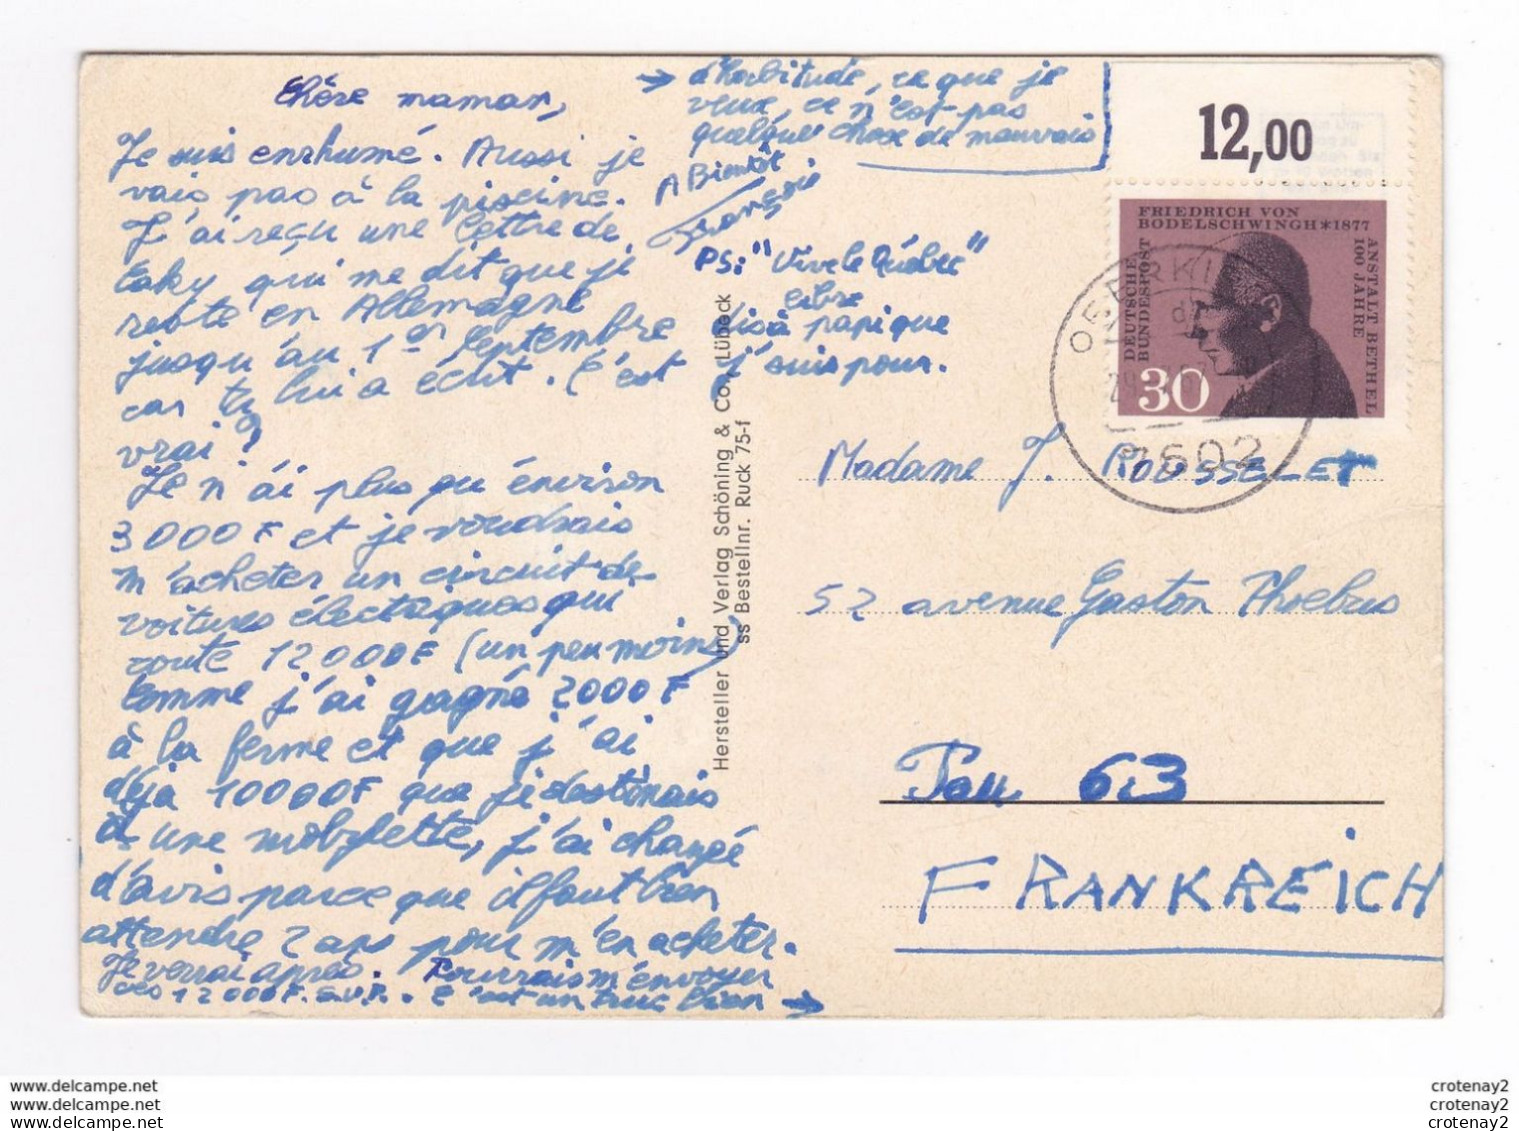 Chère maman,
Je suis enrhumé. Aussi je
vais pas à la piscine.
J'ai reçu une lettre de
qui me dit que je
reste en Allemagne
jusqu'au 1er Septembre
car tu lui a écrit. C'est
vrai?
Je n'ai plus qu'environ
3000F et je voudrais
m'acheter un circuit de
voitures électriques qui
coute 12000F (un peu moins)
Comme j'ai gagné 2000F
à la ferme et que j'ai
déja 10000F que je destinais
à une mobylette, j'ai changé
d'avis parce que il faut bien
attendre 2 ans pour m'en acheter.
Je verrai après. Pourrais m'envoyer
ces 12000F. S.V.P. C'est un truc bien →
→ d'habitude, ce que je
veux, ce n'est pas
quelque chose de mauvais
A Bientôt
François
PS: "Vive le Québec"
libre
dis à papi que
j'suis pour.
Hersteller und Verlag Schöning & Co., Lübeck
ss Bestellnr. Ruck 75-f
12,00
FRIEDRICH VON
BODELSCHWINGH*1877
DEUTSCHE
BUNDESPOST
ANSTALT BETHEL
100 JAHRE
30
7602
Madame J. ROUSSELET
52 avenue Gaston Phoebus
Pau 63
FRANKREICH
www.delcampe.net
www.delcampe.net
www.delcampe.net
crotenay2
crotenay2
crotenay2